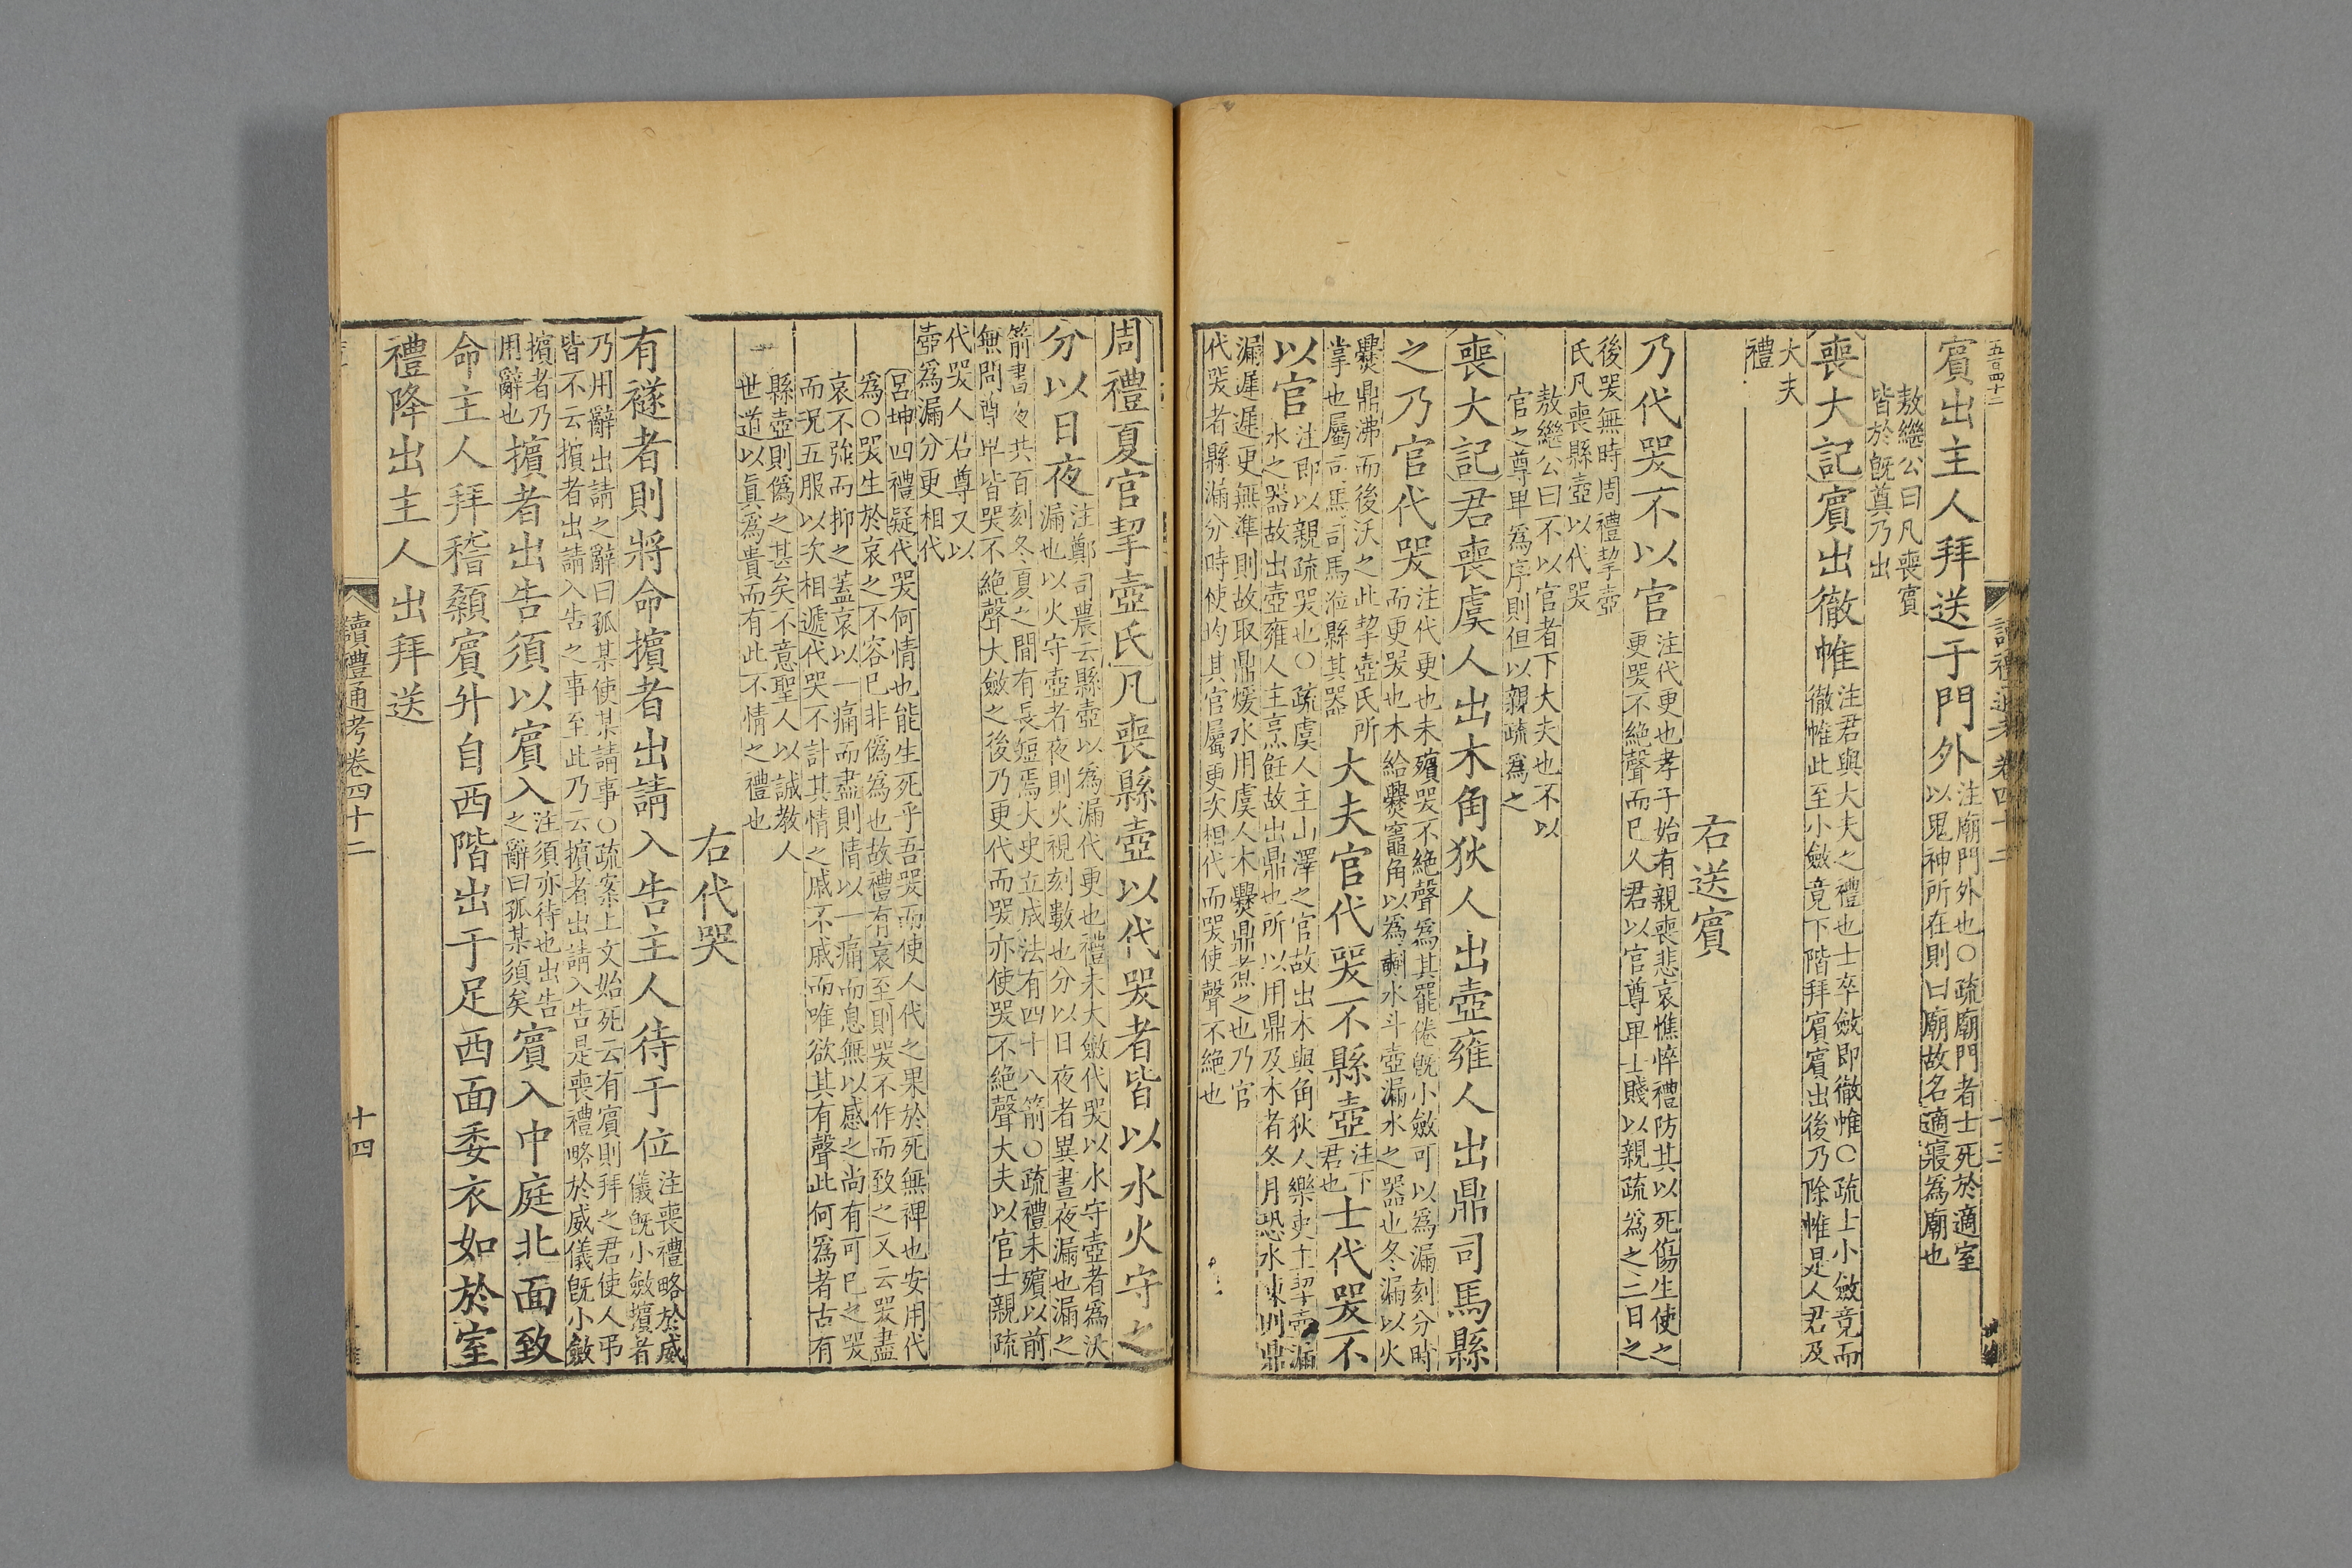 五百四十二
讀禮通考卷四十二
十三
賓出主人拜送于門外注廟門外也○疏廟門者士死於適室
以鬼神所在則曰廟故名適寢為廟也
敖繼公曰凡喪賓
皆於旣奠乃出
喪大記賓出徹帷注君與大夫之禮也士卒斂即徹帷○疏上小斂竟而
徹帷此至小斂竟下階拜賓賓出後乃除帷是人君及
大夫
禮
右送賓
乃代哭不以官注代更也孝子始有親喪悲哀憔悴禮防其以死傷生使之
更哭不絶聲而已人君以官尊卑士賤以親疏爲之三日之
後哭無時周禮挈壺
氏凡喪縣壺以代哭
敖繼公曰不以官者下大夫也不以
官之尊卑爲序則但以親疏爲之
喪大記君喪虞人出木角狄人出壺雍人出鼎司馬縣
之乃官代哭注代更也未殯哭不絶聲爲其罷倦旣小斂可以爲漏刻分時
而更哭也木給爨竈角以爲㪺水斗壺漏水之器也冬漏以火
爨鼎沸而後沃之此挈壺氏所
掌也屬司馬司馬涖縣其器
大夫官代哭不縣壺注下
君也
士代哭不
以官注即以親疏哭也○疏虞人主山澤之官故出木與角狄人樂吏主挈壺漏
水之器故出壺雍人主烹飪故出鼎也所以用鼎及木者冬月恐水凍則鼎
漏遲遲更無準則故取鼎煖水用虞人木爨鼎煮之也乃官
代哭者縣漏分時使均其官屬更次相代而哭使聲不絶也
周禮夏官挈壺氏凡喪縣壺以代哭者皆以水火守之
分以日夜注鄭司農云縣壺以爲漏代更也禮未大斂代哭以水守壺者爲沃
漏也以火守壺者夜則火視刻數也分以日夜者異晝夜漏也漏之
箭晝夜共百刻冬夏之間有長短焉大史立成法有四十八箭○疏禮未殯以前
無問尊卑皆哭不絶聲大斂之後乃更代而哭亦使哭不絶聲大夫以官士親疏
代哭人君尊又以
壺爲漏分更相代
呂坤四禮疑代哭何情也能生死乎吾哭而使人代之果於死無裨也安用代
爲○哭生於哀之不容已非僞爲也故禮有哀至則哭不作而致之又云哭盡
哀不強而抑之蓋哀以一痛而盡則情以一痛而息無以感之尚有可已之哭
而况五服以次相遞代哭不計其情之戚不戚而唯欲其有聲此何爲者古有
縣壺則僞之甚矣不意聖人以誠敎人
世道以眞爲貴而有此不情之禮也
右代哭
有襚者則將命擯者出請入告主人待于位注喪禮略於威
儀旣小斂擯者
乃用辭出請之辭曰孤某使某請事○疏案上文始死云有賓則拜之君使人弔
皆不云擯者出請入告之事至此乃云擯者出請入告是喪禮略於威儀旣小斂
擯者乃
用辭也
擯者出告須以賓入注須亦待也出告
之辭曰孤某須矣
賓入中庭北面致
命主人拜稽顙賓升自西階出于足西面委衣如於室
禮降出主人出拜送
讀禮通考卷四十二
十四